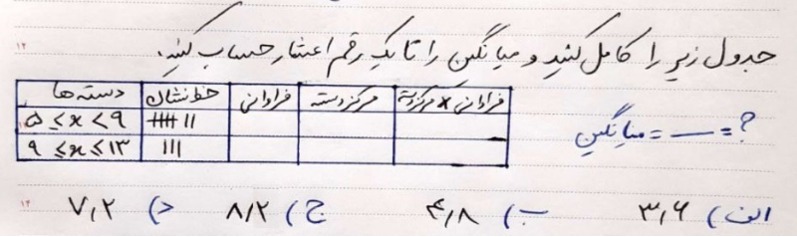 ۱۲ جدول زیر را کامل کنید و میانگین را تا یک رقم اعشار حساب کنید.
دسته‌ها | خط نشان | فراوانی | مرکز دسته | فراوانی × مرکز دسته
۵ ≤ x < ۹ | 卌 ||
؟ = — = میانگین
۹ ≤ x ≤ ۱۳ | |||
الف) ۳٫۶ ب) ۴٫۸ ج) ۸٫۲ د) ۷٫۲ ۱۳